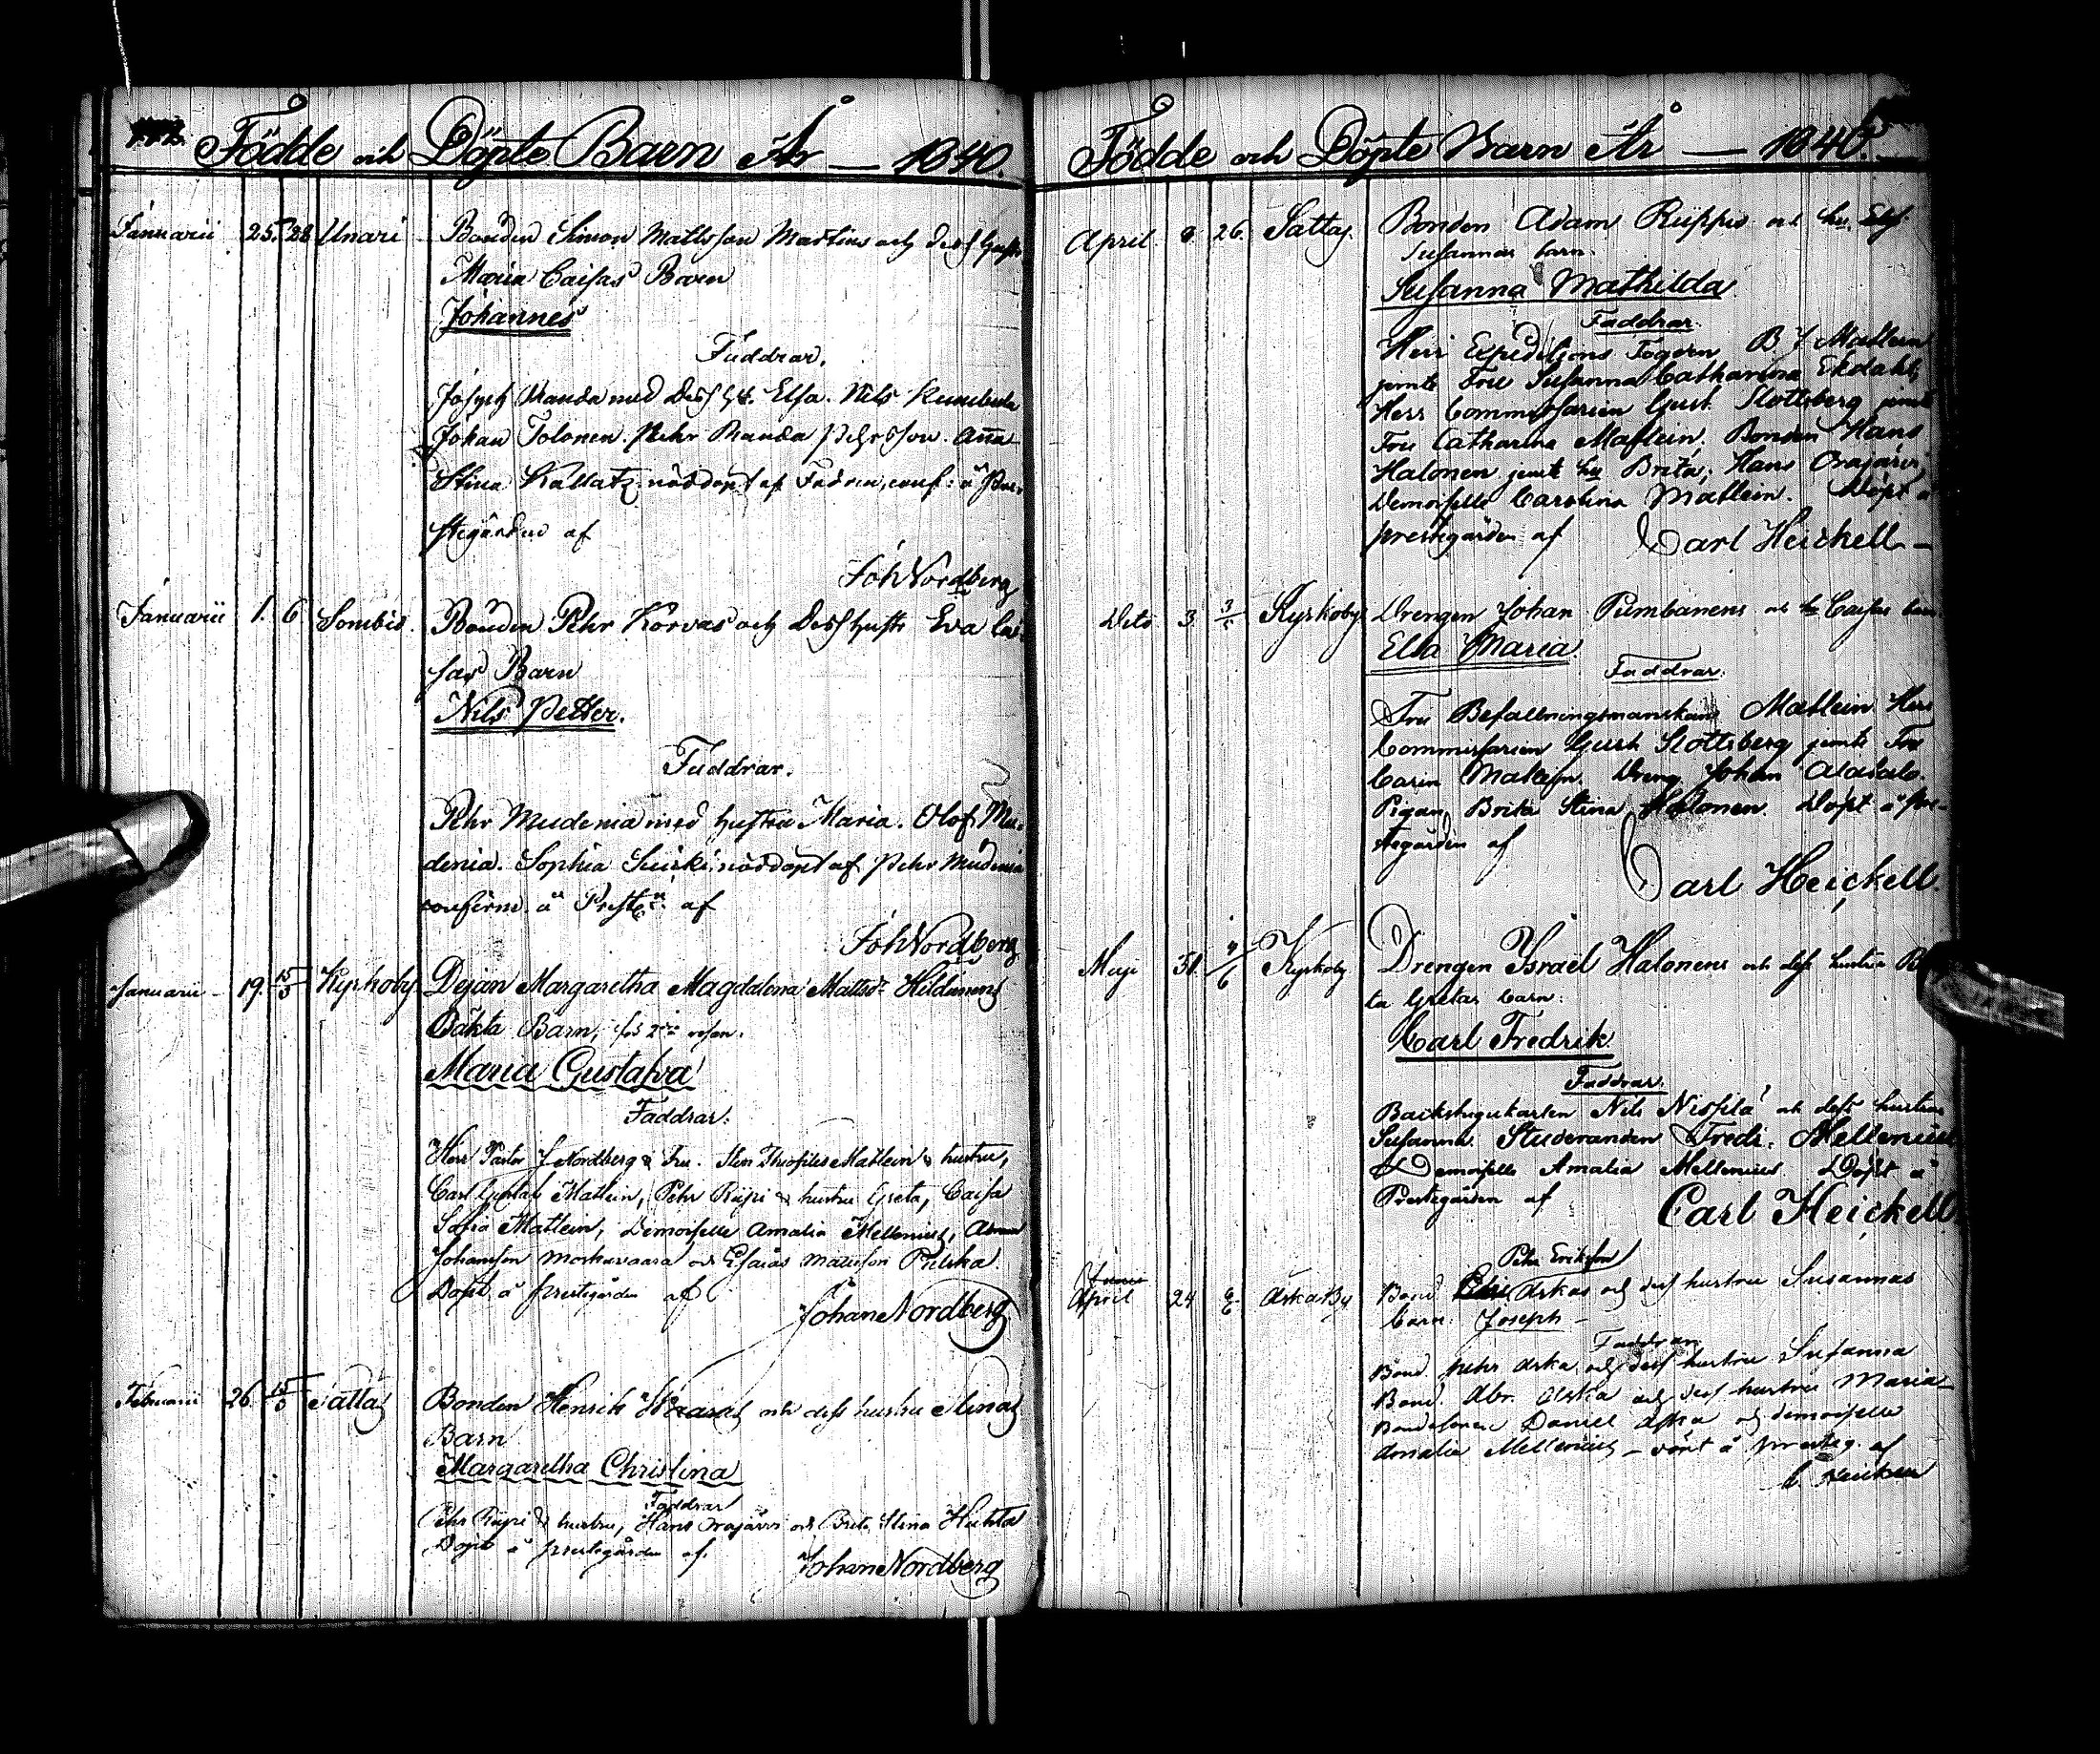 Födde och Döpte Barn År — 1840.
Januarii 25. 28 Unari Bonden Simon Mattsson Martins och Dess Hustr
Maria Caisas Barn
Johannes
Faddrar.
Joseph Randa med Dess H. Elsa. Nils
Johan Tolonen. Pehr Randa Pehrsson. Anna
Stina Kallatz nöddöpt af Fadren, conf. å Pre-
stegården af
Joh Nordberg
Januarii 1. 6 Sombio. Bonden Pehr Korvas och Dess Hustr Eva Cai-
sas Barn
Nils Petter.
Faddrar.
Pehr Mudenia med Hustru Maria. Olof Mu-
denia. Sophia nöddöpt af Pehr Mudenia
confirm. å Prestg. af
Joh Nordberg
Januarii 19. 15/3 Kyrkoby Pejan Margaretha Magdalena Mattsdr
Oäkta Barn,
Maria Gustafva
Faddrar:
Herr Pastor J Nordberg & Fru. Sten Theofilus Matlein & hustru,
Carl Gustaf Matlein, Pehr Riipi & hustru Greta, Caisa
Sofia Matlein, Demoiselle Amalia Mellenius,
Johansson och Esaias Mattsson Pulska.
Döpt å prestgården af
Johan Nordberg
Februarii 26. 15/3 Sattas Bonden Henrik och dess hustru Stinas
Barn
Margaretha Christina
Faddrar
Pehr Riipi & hustru, Hans Orajärvi och Brita Stina Huhta
Döpt å prestegården af.
Johan Nordberg
Födde och Döpte Barn År — 1840.
April. 26. Sattas. Bonden Adam Riippis och hu. Els.
Susannas barn.
Susanna Mathilda
Faddrar.
Herr Expeditions Fogden B J Matlein
jemte Fru Susanna Catharina Ekdahl,
Herr Commissarien Gust. Slottsberg jemte
Fru Catharina Matlein. Bonden Hans
Halonen jemte hu Brita; Hans Orajärvi,
Demoiselle Carolina Matlein. Döpt å
prestegården af Carl Heickell
Dito 3 3/5 Kyrkoby Drengen Johan Pumbanens och hu Caisas barn
Elsa Maria
Faddrar.
Fru Befallningsmanskan Matlein Herr
Commissarien Gust Slottsberg jemte Fru
Carin Matlein. Dreng Johan Alatalo.
Pigan Brita Stina Halonen. Döpt å pre-
stegården af
Carl Heickell.
Maji 31. 4/6 Kyrkoby Drengen Israel Halonens och dess hustru B
ta Gretas barn:
Carl Fredrik
Faddrar.
Backstugukarlen Nils Nispilä och dess hustru
Susanna. Studeranden Fredr. Mellenius
& Demoiselle Amalia Mellenius Döpt å
Prestegården af
Carl Heickell
Pehr Eriksson
April 24 Aska By Bond. Askas och dess hustru Susannas
barn. Joseph —
Faddrar
Bond. Pehr Aska och dess hustru Susanna
Bond. Abr. Aska och dess hustru Maria
Bondesonen Daniel Aska och demoiselle
Amalia Mellenius — döpt å presteg. af
C. Heickell